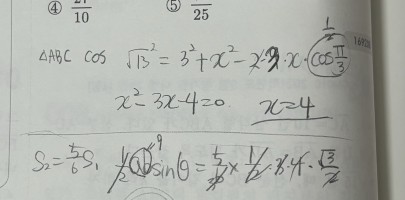 ④ 27/10 ⑤ /25
△ABC cos √13² = 3² + x² - 2·3·x·cos π/3 1/2
x² - 3x - 4 = 0. x = 4
S₂ = 5/6 S₁ 1/2 sinθ = 5/6 × 1/2 · 3 · 4 · √3/2